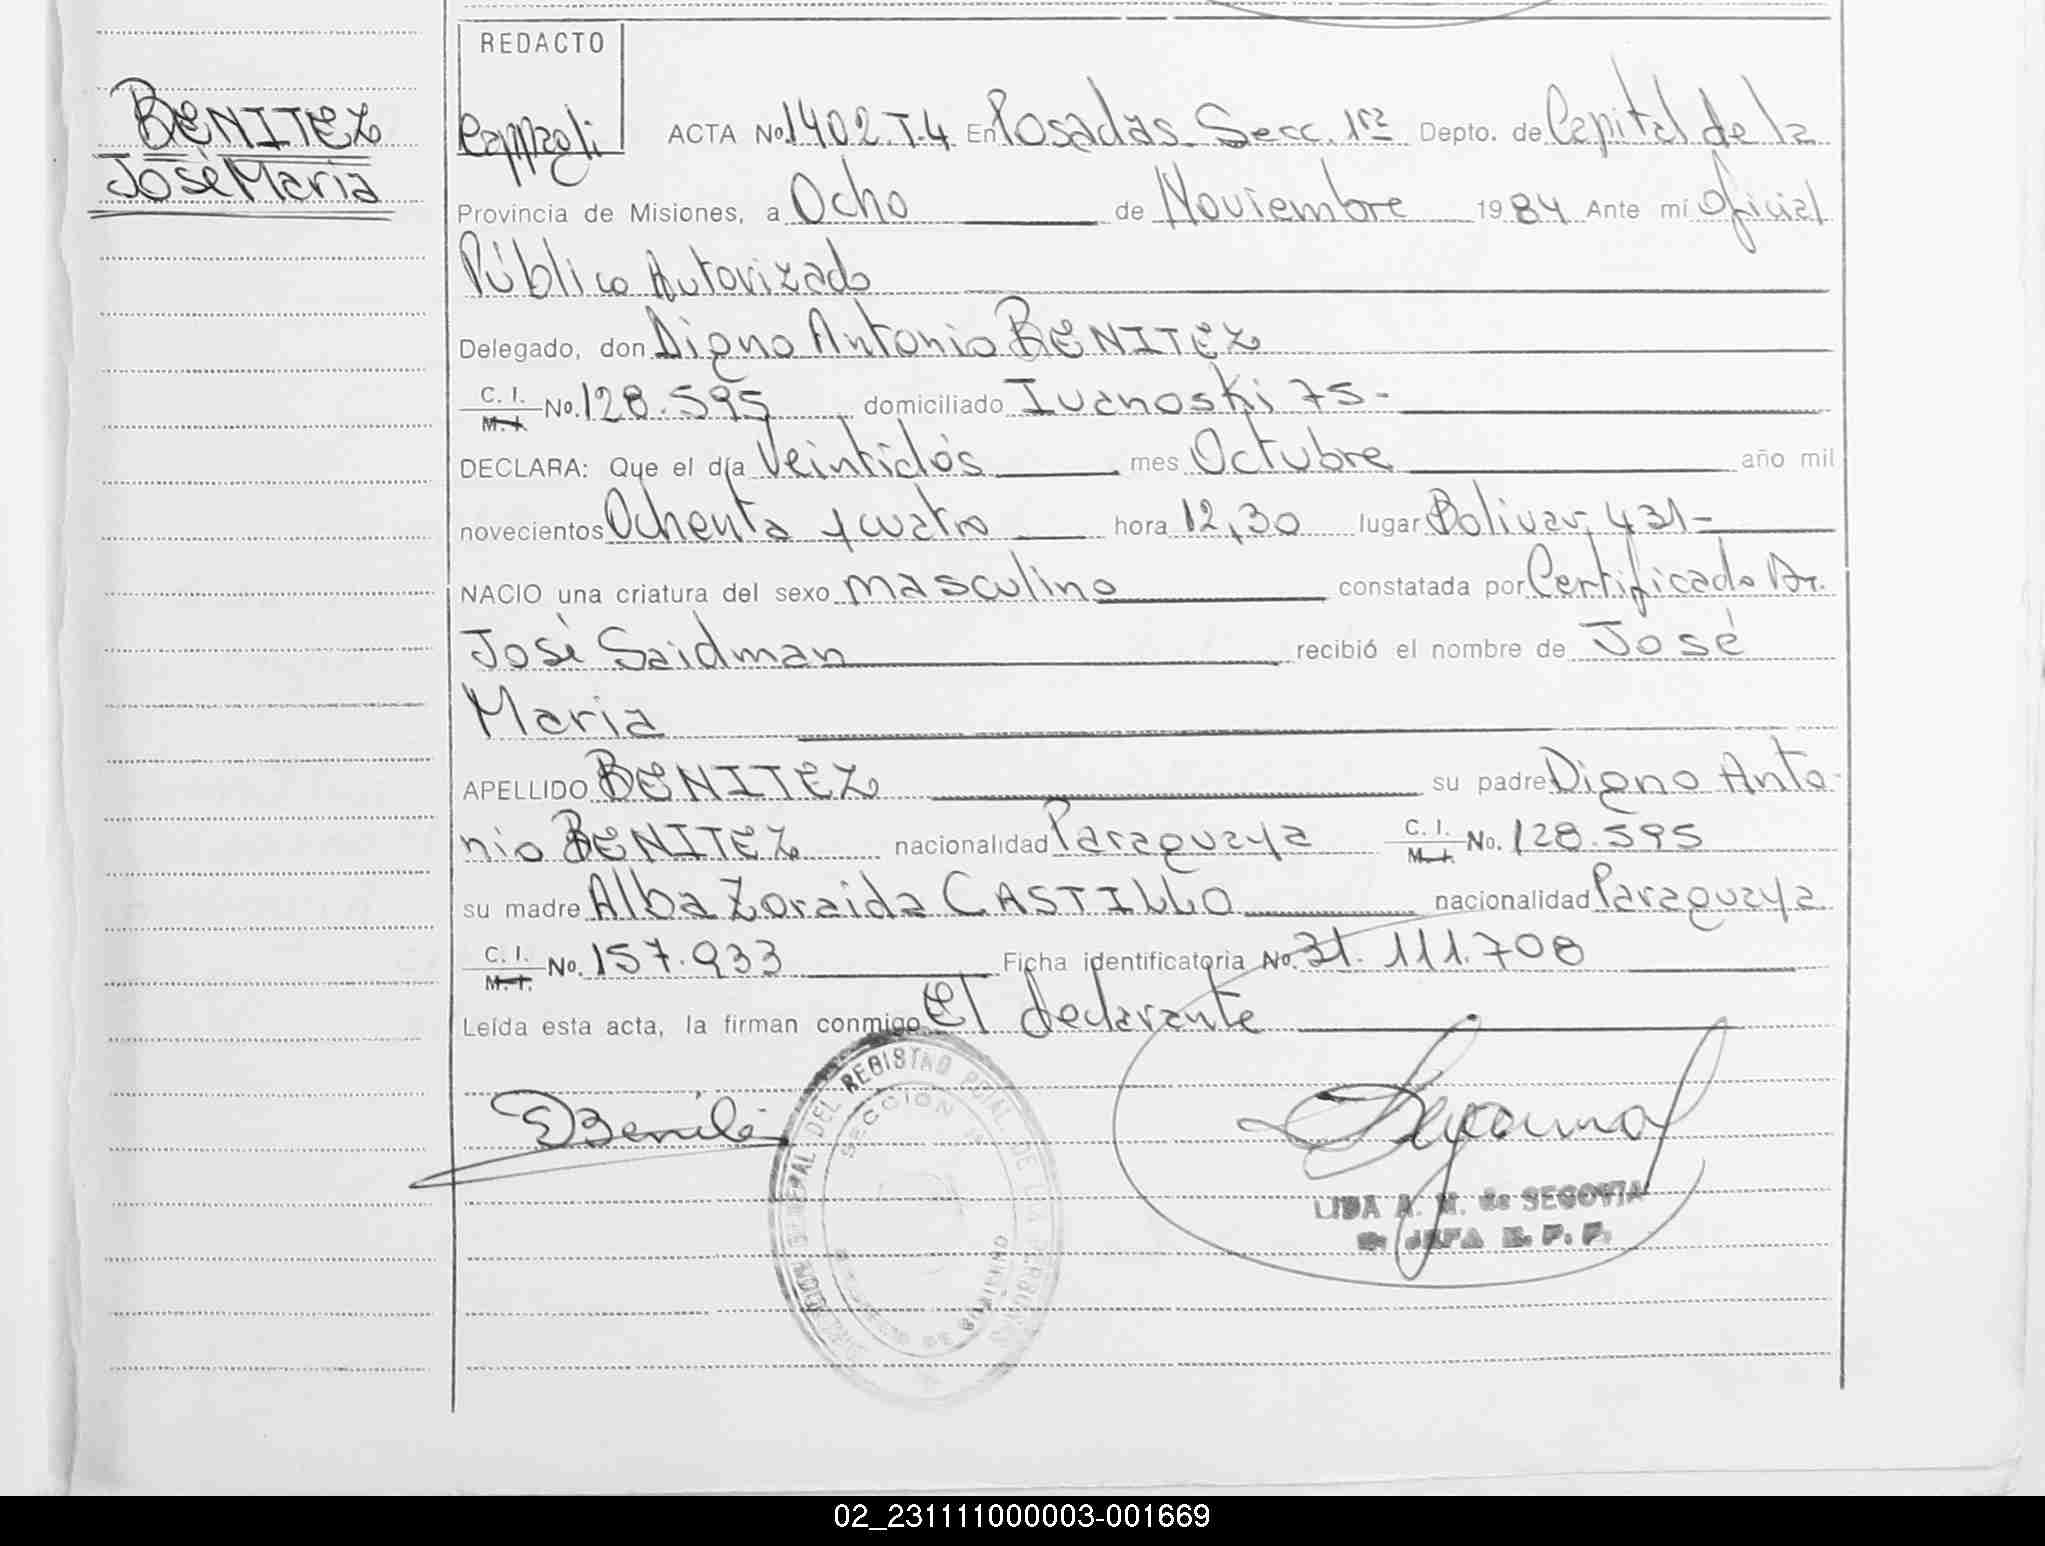 BENITEZ
José Maria
REDACTO
ACTA No. 1402 T.4 En Posadas Secc. 1ra Depto. de Capital de la
Provincia de Misiones, a Ocho de Noviembre 1984 Ante mí Oficial
Público Autorizado
Delegado, don Digno Antonio BENITEZ
C. I. M. I. No. 128.595 domiciliado Ivanoski 75-
DECLARA: Que el día Veintidós mes Octubre año mil
novecientos Ochenta y cuatro hora 12,30 lugar Bolivar, 431-
NACIO una criatura del sexo masculino constatada por Certificado Dr.
José Saidman recibió el nombre de José
Maria
APELLIDO BENITEZ su padre Digno Anto-
nio BENITEZ nacionalidad Paraguaya C. I. M. I. No. 128.595
su madre Alba Zoraida CASTILLO nacionalidad Paraguaya
C. I. M. I. No. 157.933 Ficha identificatoria No. 31.111.708
Leída esta acta, la firman conmigo El declarante
DBenitez
DIRECCION GENERAL DEL REGISTRO PCIAL DE LA PERSONAS
SECCION
LIDA A. M. de SEGOVIA
JEFA
02_231111000003-001669